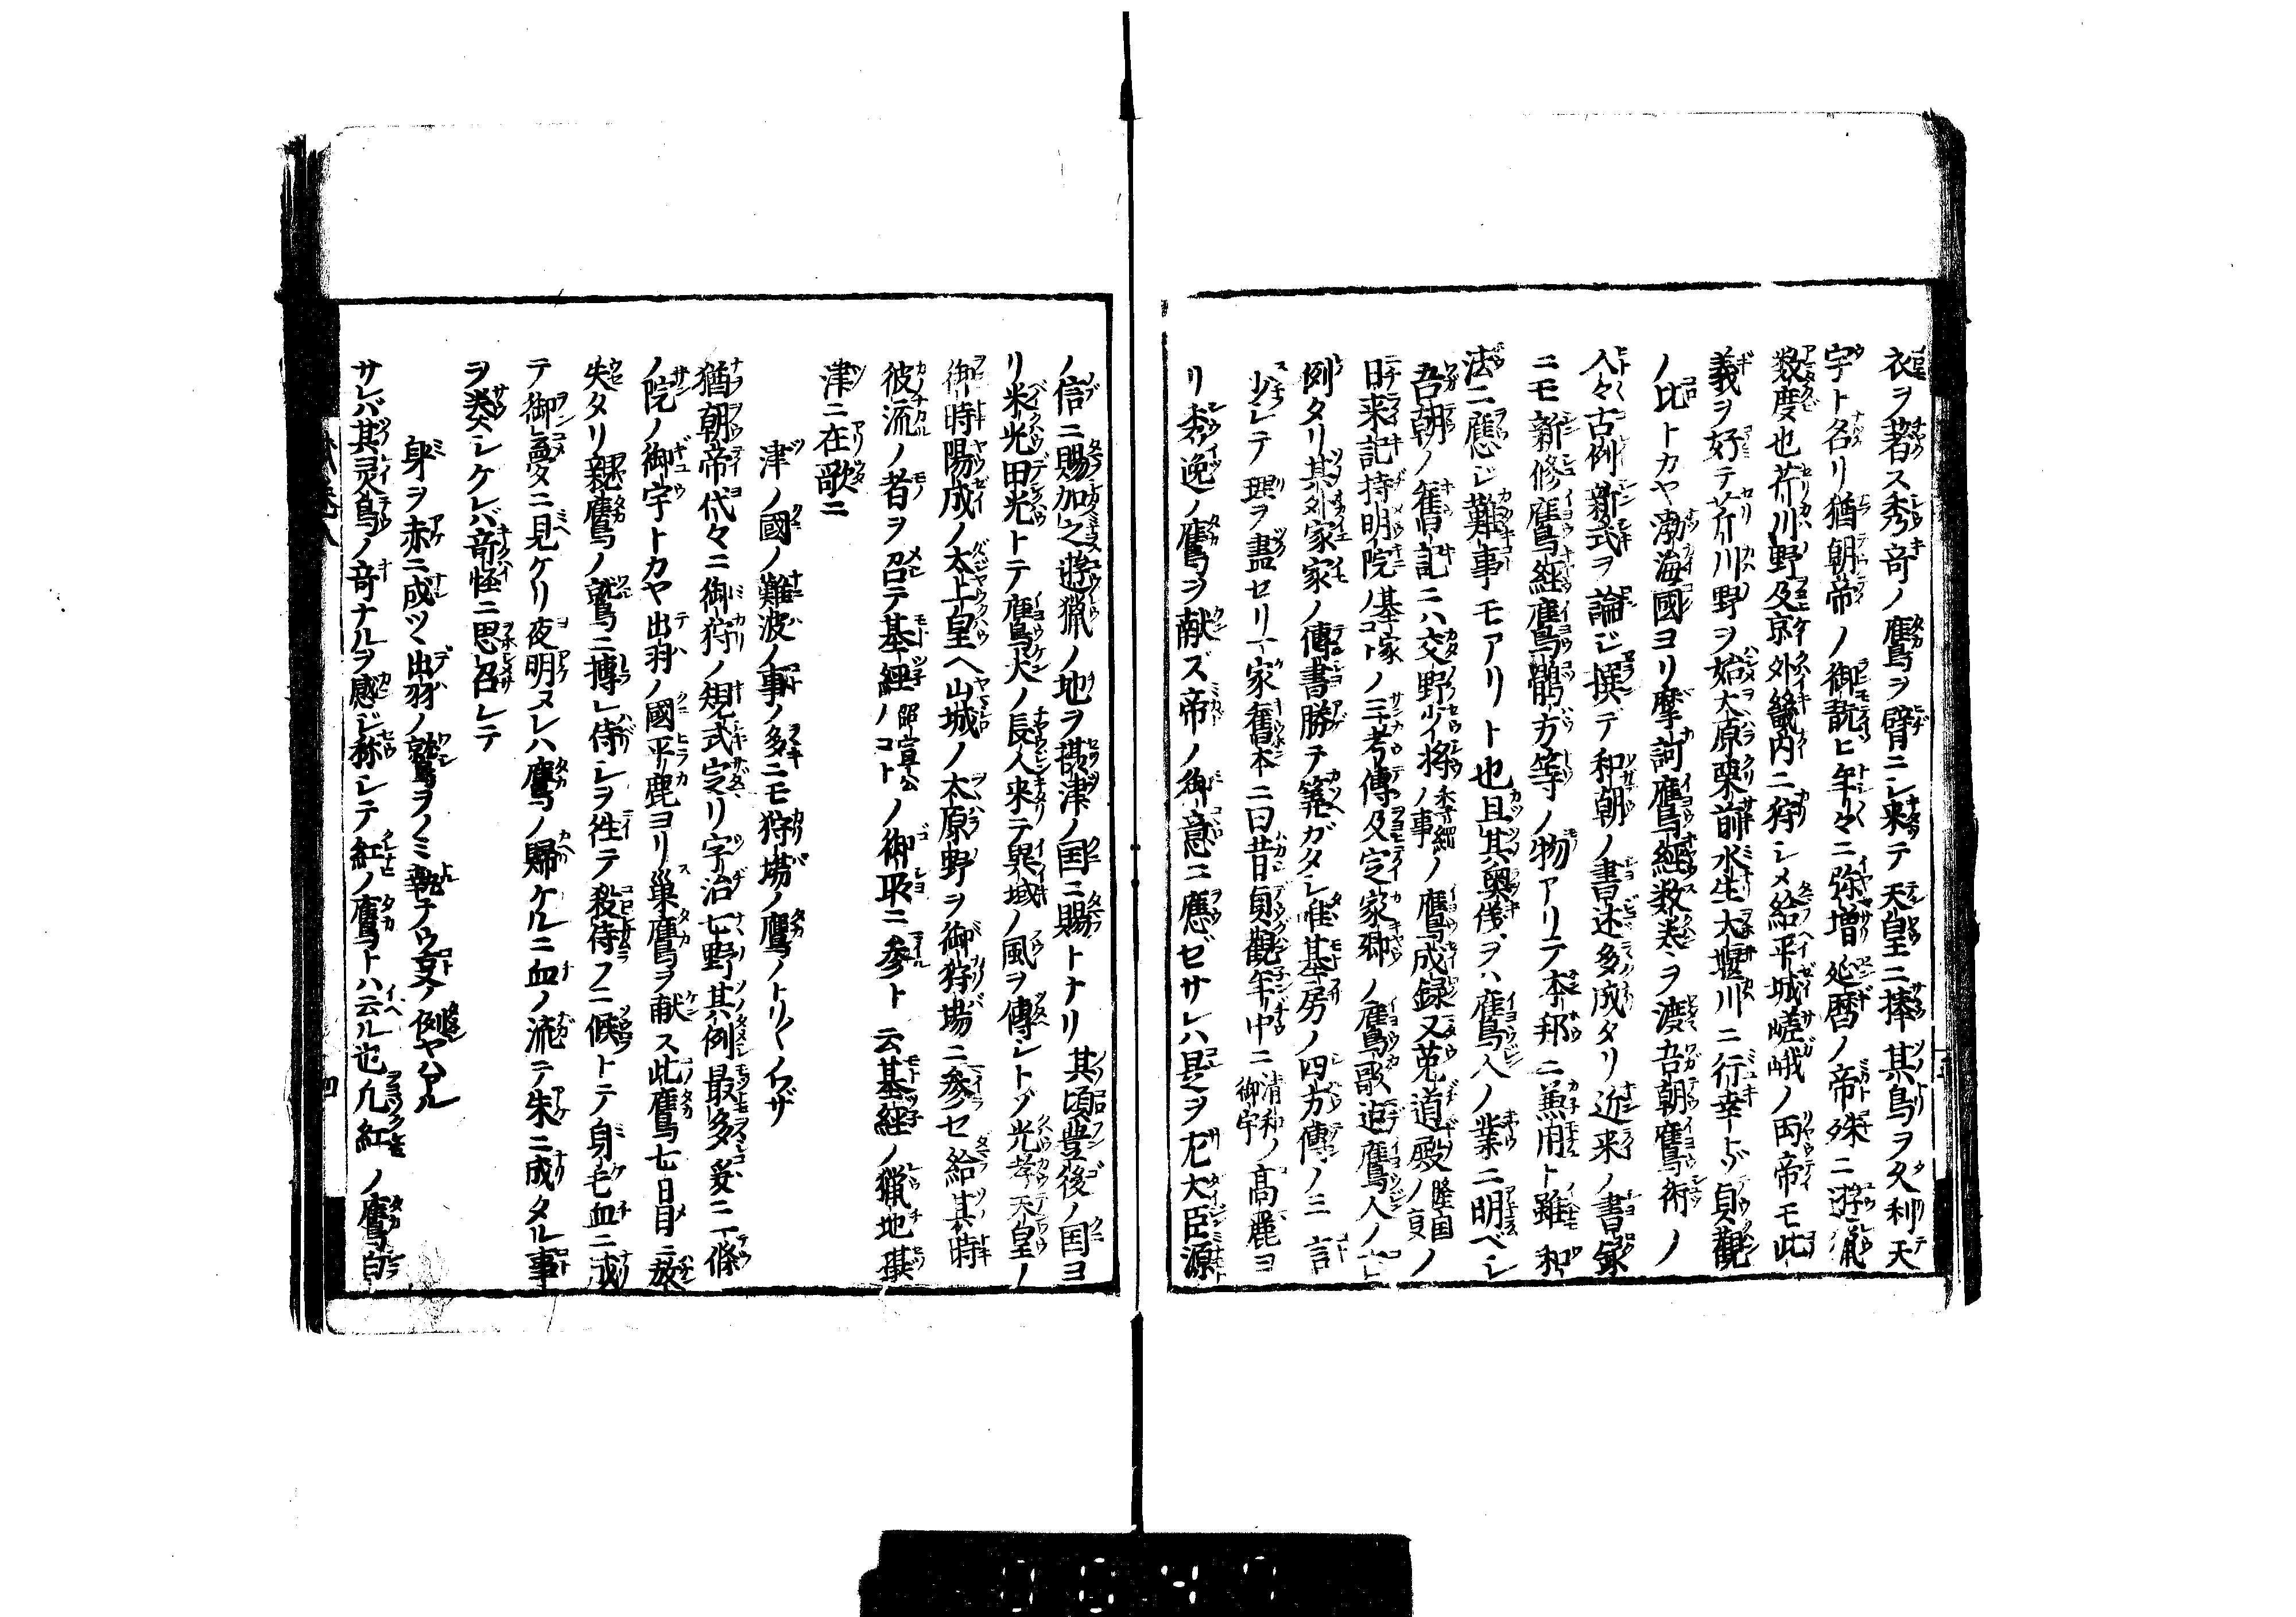 衣ヲ著ス秀奇ノ鷹ヲ臂ニシ来テ天皇ニ捧其鳥ヲ久利天
宇ト名リ猶朝帝ノ御翫ビ年々ニ弥増延暦ノ帝殊ニ遊猟
数度也芹川野及京外畿内ニ狩シメ給平城嵯峨ノ両帝モ此
義ヲ好テ芹川野ヲ始大原栗前水生大堰川ニ行幸トゾ貞観
ノ比トカヤ渤海國ヨリ摩訶鷹経数巻ヲ渡吾朝鷹術ノ
人々古例新式ヲ論ジ撰デ和朝ノ書述多成タリ近来ノ書録
ニモ新修鷹経鷹鶻方等ノ物アリテ本邦ニ兼用ト雖和
法ニ應ジ難事モアリト也且其奥儀ヲハ鷹人ノ業ニ明ベシ
吾朝ノ舊記ニハ交野少将季縄ノ事ノ鷹成録又菟道殿隆国ノ夏ノ
日来記持明院ノ基家ノコトノ三考傳及定家卿ノ鷹歌迠鷹人ノ
例タリ其外家家ノ傳書勝テ筭ガタシ唯基房ノ四方傳ノミ言
少シテ理ヲ盡セリ一家舊本ニ曰昔貞觀年中ニ清和ノ御宇高麗ヨ
リ秀逸ノ鷹ヲ献ズ帝ノ御意ニ應ゼサレハ是ヲ左大臣源
ノ信ニ賜加之遊猟ノ地ヲ摂津ノ国ニ賜トナリ其頃豊後ノ国ヨ
リ米光田光トテ鷹犬ノ長人来テ異域ノ風ヲ傳シトゾ光孝天皇ノ
御時陽成ノ太上皇ヘ山城ノ大原野ヲ御狩場ニ参セ給其時
彼流ノ者ヲ召テ基経昭宣公ノコトノ御取ニ参ト云基経ノ猟地摂
津ニ在歌ニ
津ノ國ノ難波ノ事ノ多ニモ狩場ノ鷹ノトリ〱ノワザ
猶朝帝代々ニ御狩ノ規式定リ宇治七野其例最多爰ニ一條
ノ院ノ御宇トカヤ出羽ノ國平鹿ヨリ巣鷹ヲ献ス此鷹七日目ニ放
失タリ親鷹ノ鷲ニ搏レ侍シヲ徃テ殺侍ノニ候トテ身毛血ニ成
テ御夢ニ見ケリ夜明ヌレハ鷹ノ歸ケルニ血ノ流テ朱ニ成タル事
ヲ奏シケレバ奇怪ニ思召シテ
身ヲ赤ニ成ツヽ出羽ノ鷲ヲノミ執チウ夏ノ例ヤハアル
サレバ其灵鳥ノ奇ナルヲ感ジ称シテ紅ノ鷹トハ云ル也凡紅ノ鷹白
四